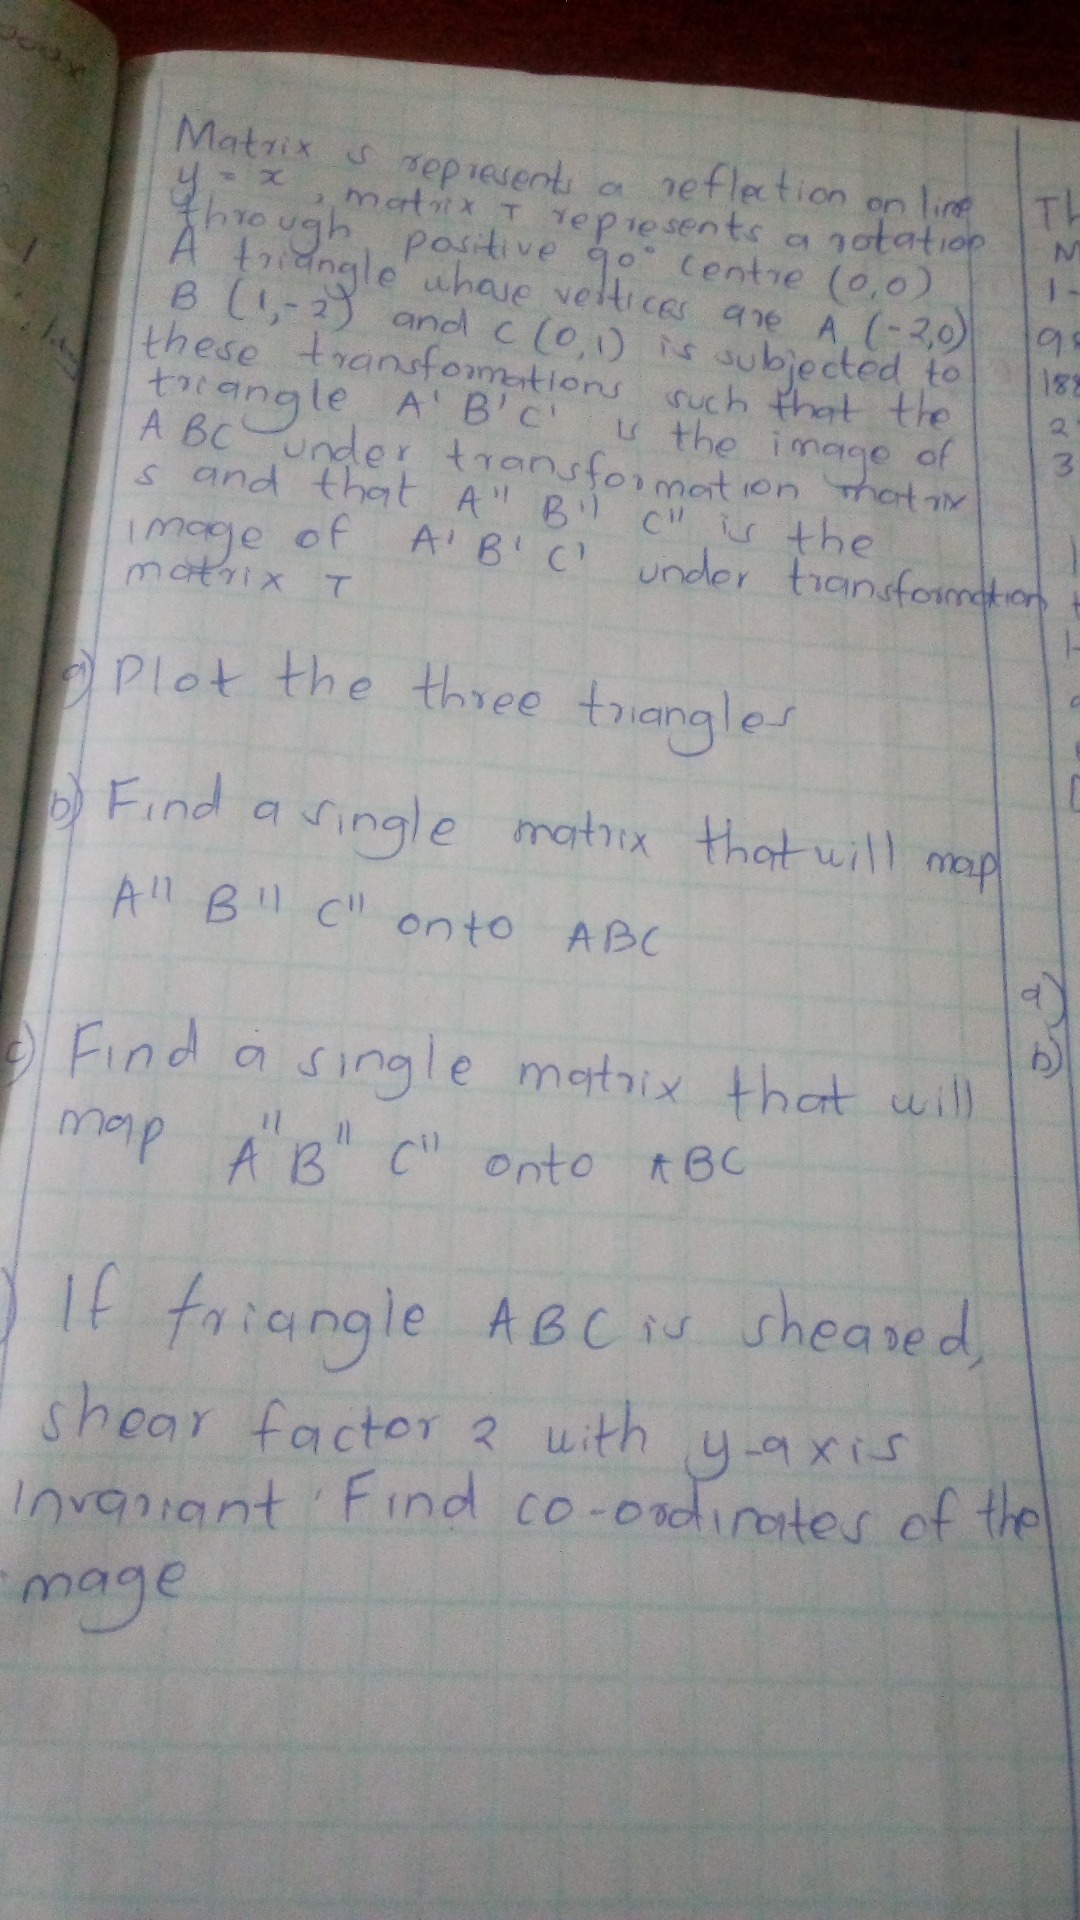 Matrix s represents a reflection on line
y = x, matrix T represents a rotation
through positive 90° centre (0,0)
A triangle whose vertices are A (-2,0)
B (1,-2) and C (0,1) is subjected to
these transformations such that the
triangle A' B' C' is the image of
ABC under transformation matrix
s and that A" B" C" is the
image of A' B' C' under transformation
matrix T
a) Plot the three triangles
b) Find a single matrix that will map
A" B" C" onto ABC
c) Find a single matrix that will
map A" B" C" onto ABC
) If triangle ABC is sheared,
shear factor 2 with y-axis
invariant. Find co-ordinates of the
mage
Th
N
1-
188
2
3
a)
b)